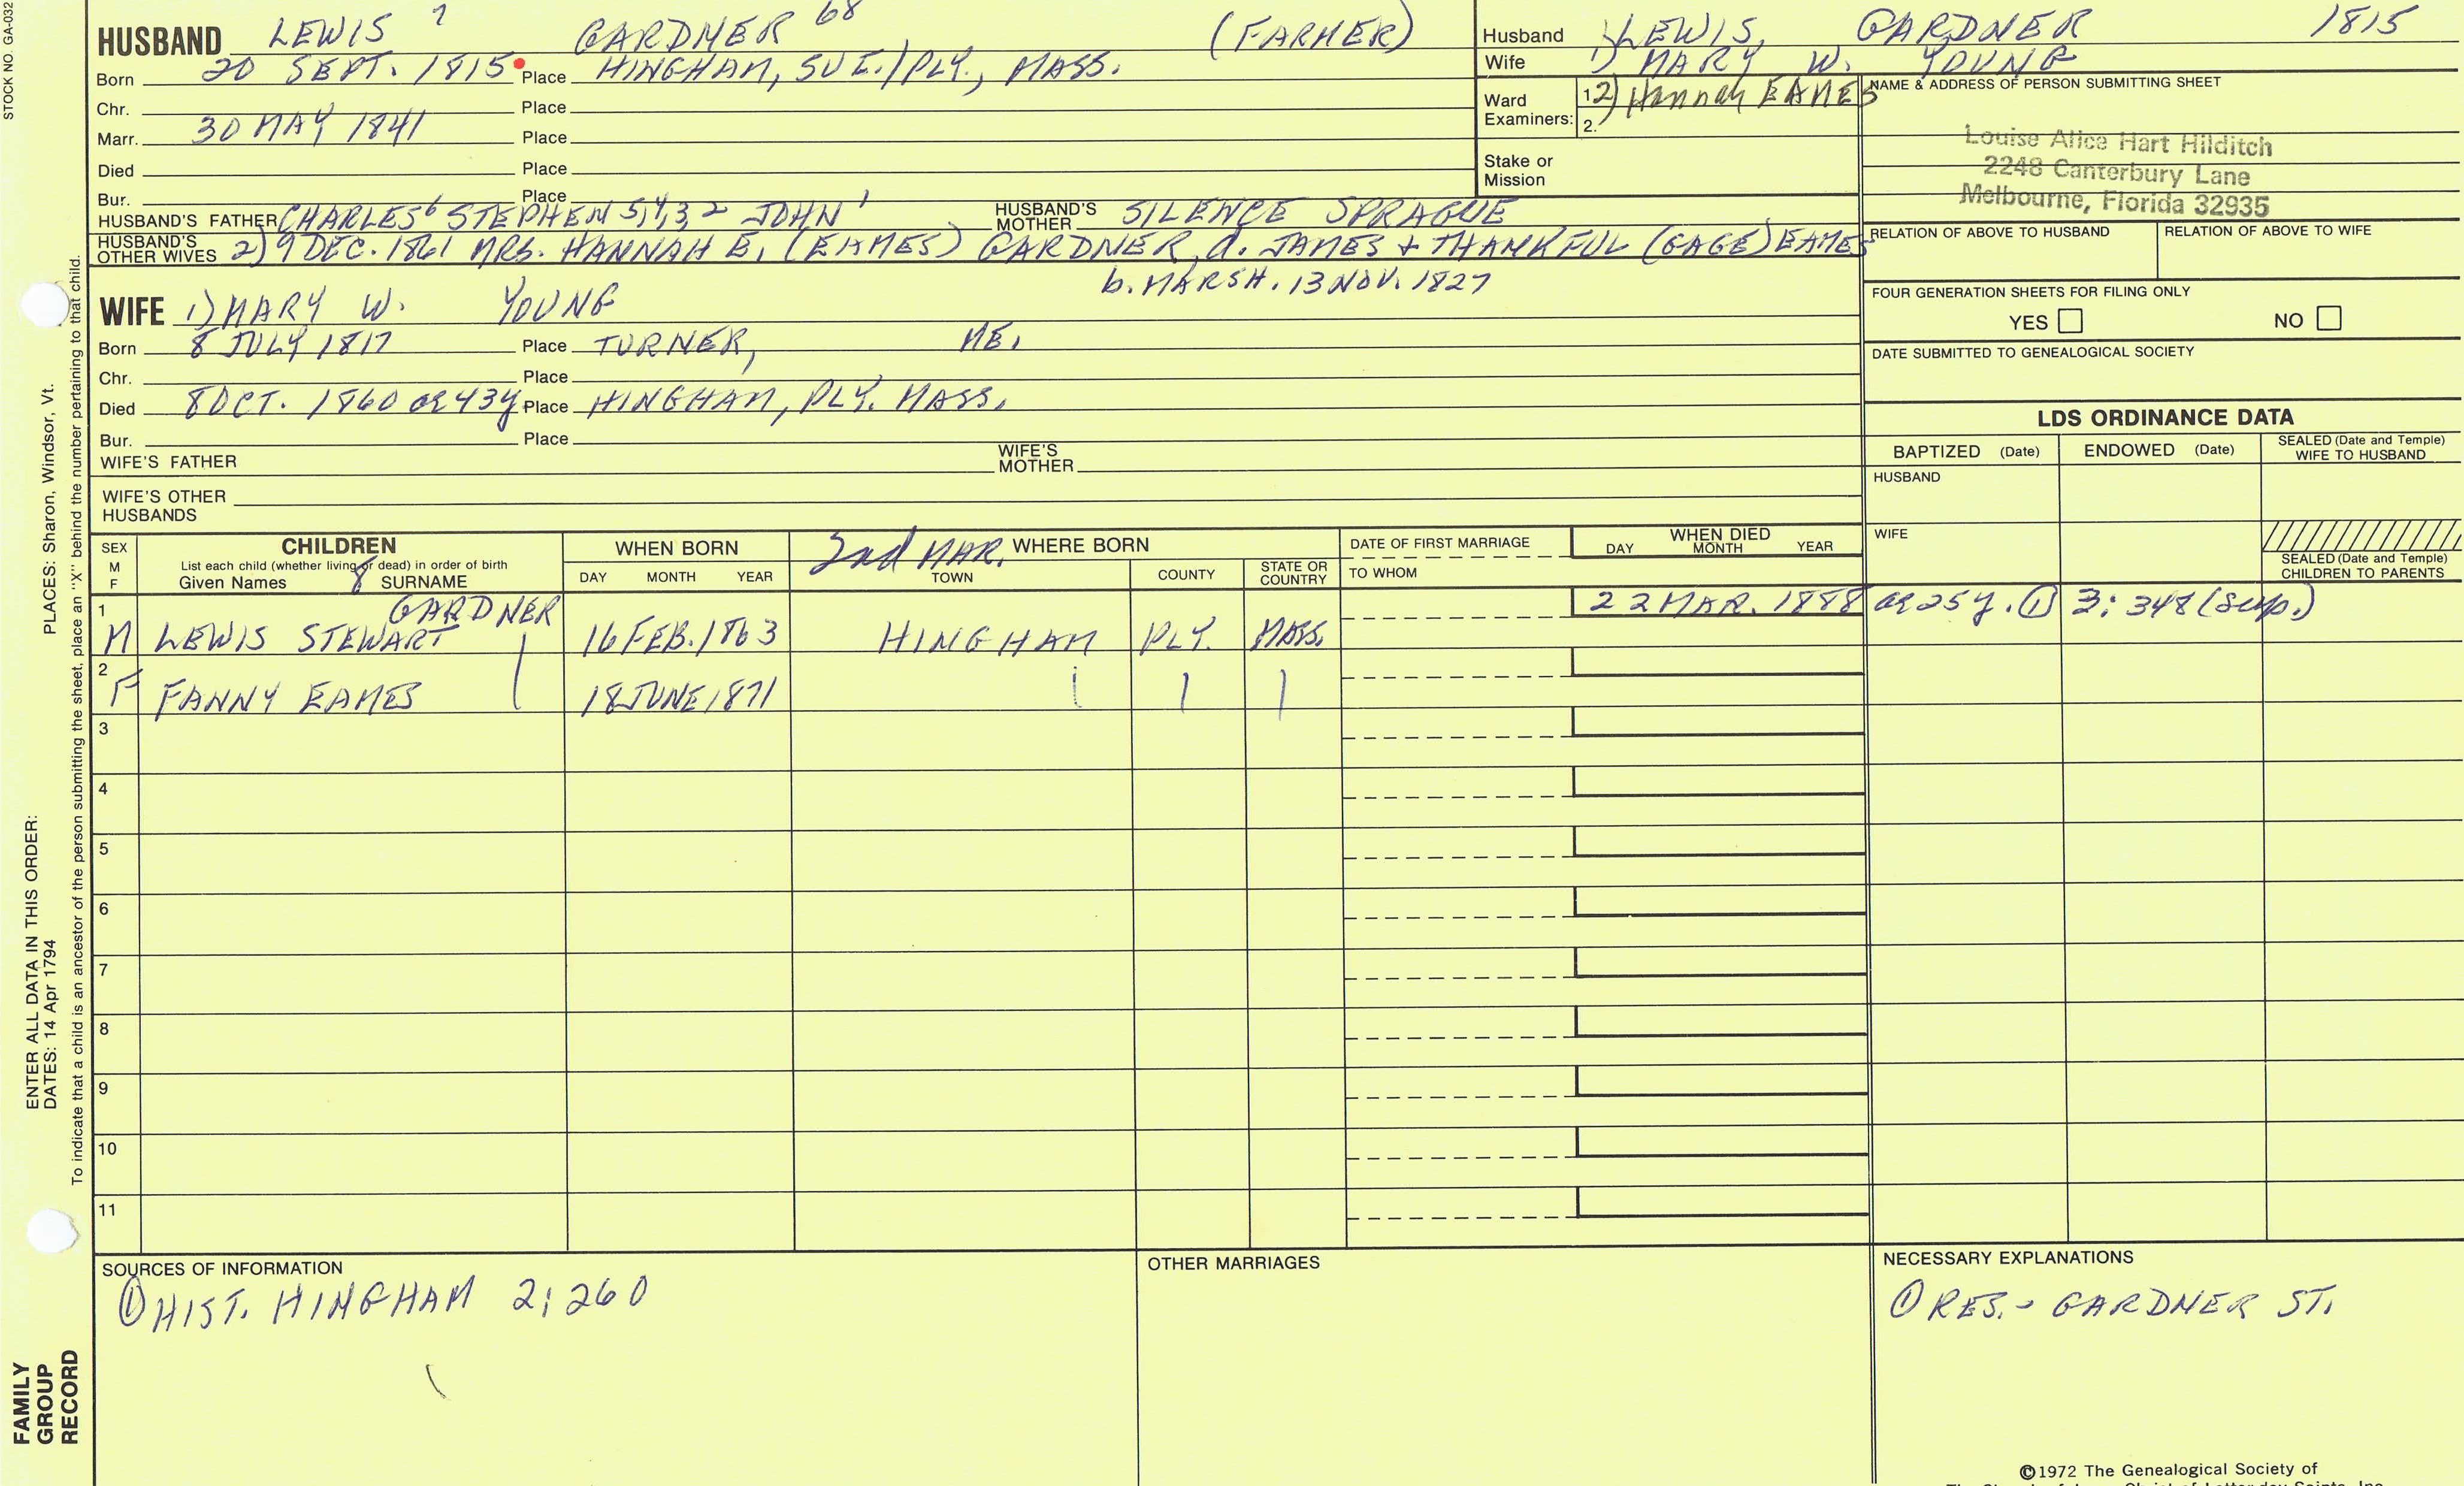 STOCK NO. GA-032
HUSBAND LEWIS 7 GARDNER 68 (FARMER)
Born 20 SEPT. 1815 Place HINGHAM, SUF./PLY., MASS.
Chr. Place
Marr. 30 MAY 1841 Place
Died Place
Bur. Place
HUSBAND'S FATHER CHARLES 6 STEPHEN 5,4,3,2 JOHN 1 HUSBAND'S MOTHER SILENCE SPRAGUE
HUSBAND'S OTHER WIVES 2) 9 DEC. 1861 MRS. HANNAH E. (EAMES) GARDNER, d. JAMES + THANKFUL (GAGE) EAMES
b. MARSH. 13 NOV. 1827
Husband 1) LEWIS, GARDNER 1815
Wife 1) MARY W. YOUNG
Ward Examiners: 1. 2) Hannah EAMES
2.
Stake or Mission
NAME & ADDRESS OF PERSON SUBMITTING SHEET
Louise Alice Hart Hilditch
2248 Canterbury Lane
Melbourne, Florida 32935
RELATION OF ABOVE TO HUSBAND RELATION OF ABOVE TO WIFE
FOUR GENERATION SHEETS FOR FILING ONLY
YES NO
DATE SUBMITTED TO GENEALOGICAL SOCIETY
WIFE 1) MARY W. YOUNG
Born 8 JULY 1817 Place TURNER, ME.
Chr. Place
Died 8 OCT. 1860 ag 43y Place HINGHAM, PLY. MASS.
Bur. Place
WIFE'S FATHER WIFE'S MOTHER
WIFE'S OTHER HUSBANDS
LDS ORDINANCE DATA
BAPTIZED (Date) ENDOWED (Date) SEALED (Date and Temple) WIFE TO HUSBAND
HUSBAND
WIFE
SEALED (Date and Temple) CHILDREN TO PARENTS
SEX M F
CHILDREN
List each child (whether living or dead) in order of birth
Given Names 8 SURNAME
WHEN BORN
DAY MONTH YEAR
2nd MAR. WHERE BORN
TOWN COUNTY STATE OR COUNTRY
DATE OF FIRST MARRIAGE
TO WHOM
WHEN DIED
DAY MONTH YEAR
1 M LEWIS STEWART GARDNER 16 FEB. 1863 HINGHAM PLY. MASS. 22 MAR. 1888 ag 25y. ① 3: 348 (Sup.)
2 F FANNY EAMES | 18 JUNE 1871 | | |
3
4
5
6
7
8
9
10
11
SOURCES OF INFORMATION
① HIST. HINGHAM 2: 260
OTHER MARRIAGES
NECESSARY EXPLANATIONS
① RES. - GARDNER ST.
©1972 The Genealogical Society of
ENTER ALL DATA IN THIS ORDER:
DATES: 14 Apr 1794
PLACES: Sharon, Windsor, Vt.
To indicate that a child is an ancestor of the person submitting the sheet, place an "X" behind the number pertaining to that child.
FAMILY
GROUP
RECORD